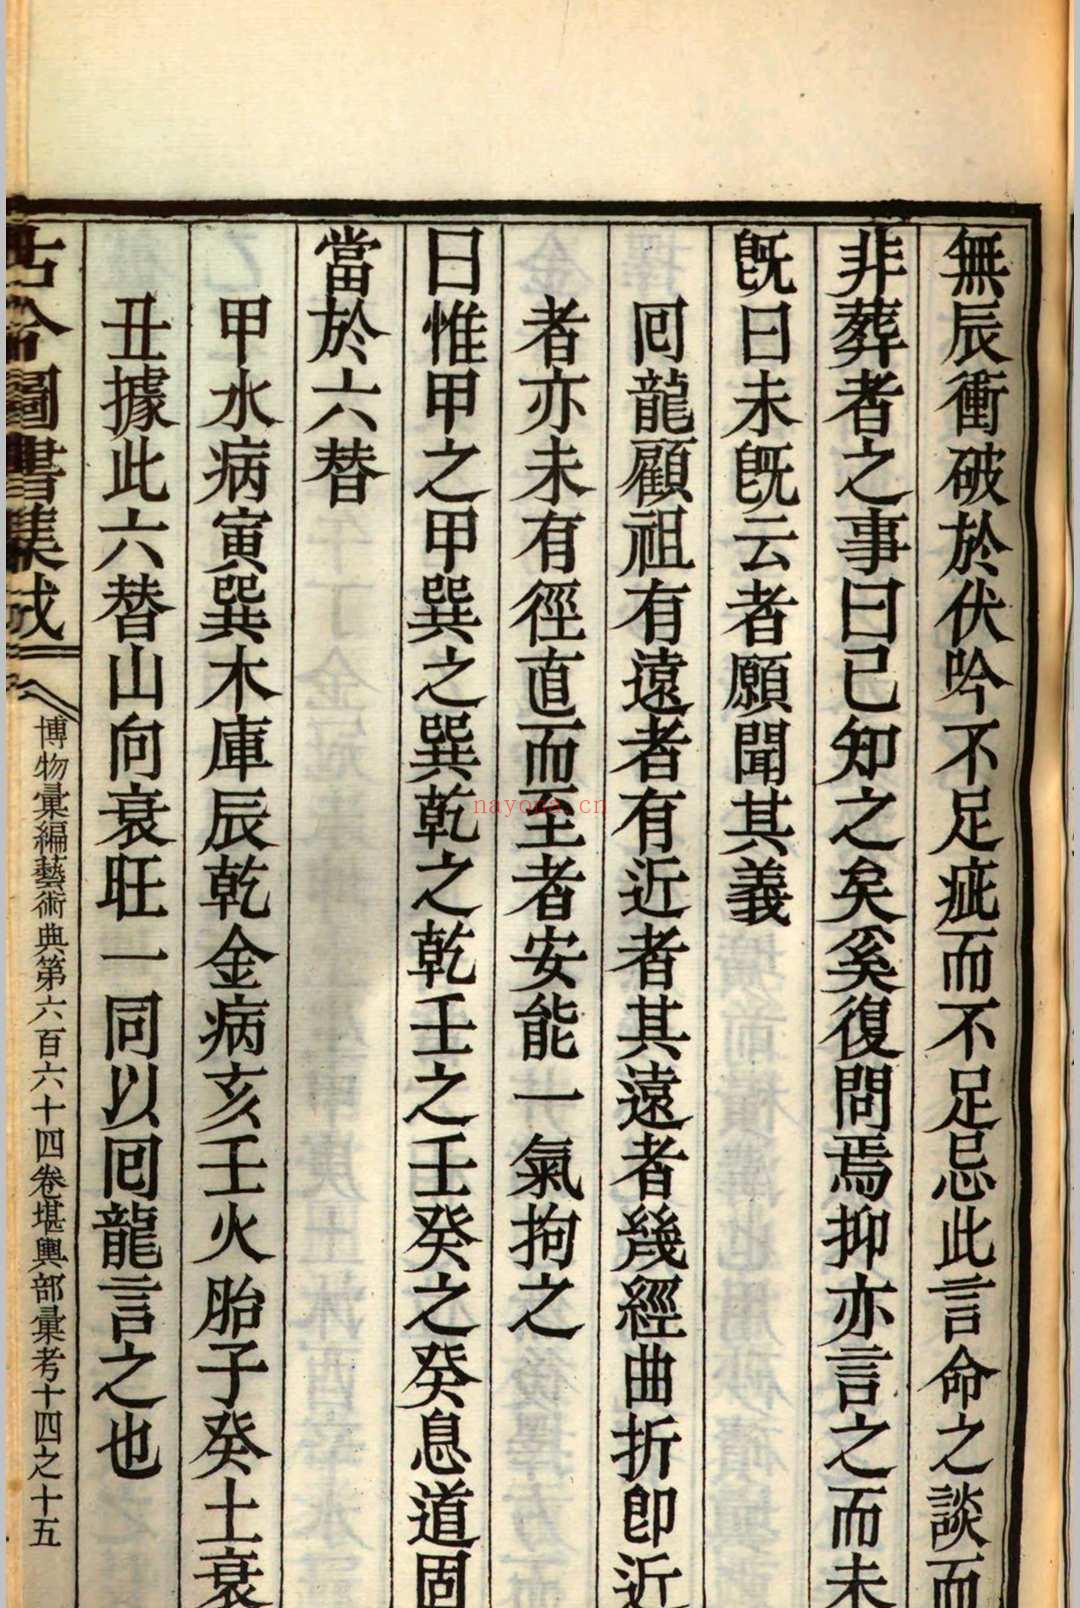 無辰衝破於伏吟不足疵而不足忌此言命之談而
非葬者之事曰已知之矣奚復問焉抑亦言之而未
旣曰未旣云者願聞其義
回龍顧祖有遠者有近者其遠者幾經曲折卽近
者亦未有徑直而至者安能一氣拘之
曰惟甲之甲巽之巽乾之乾壬之壬癸之癸息道固
當於六替
甲水病寅巽木庫辰乾金病亥壬火胎子癸土衰
丑據此六替山向衰旺一同以回龍言之也
古今圖書集成
博物彙編藝術典第六百六十四卷堪輿部彙考十四之十五
nayona.cn